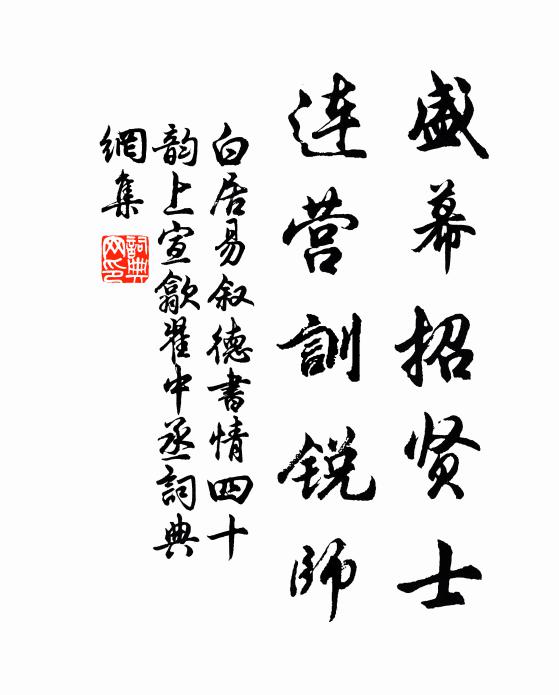 盛幕招贤士
连营訓锐師
白居易叙德書情四十
韵上宣歙翟中丞詞典
網集
詞典網印